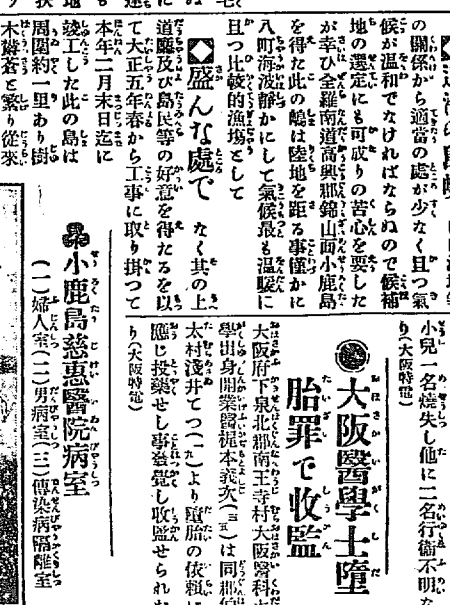 の關係から適當の處が少なく且つ氣
候が温和でなければならぬので候補
地の選定にも可成りの苦心を要した
が幸ひ全羅南道高興郡錦山面小鹿島
を得た此の島は陸地を距る事僅かに
八町海波靜かにして氣候最も温暖に
且つ比較的漁場として
盛んな處で なく其の上
道廳及び島民等の好意を得たるを以
て大正五年春から工事に取り掛つて
本年二月末日迄に
竣工した此の島は
周圍約一里あり樹
木鬱蒼と繁り從來
小鹿島慈惠醫院病室
(一)婦人室(二)男病室(三)傳染病隔離室
小兒一名燒失し他に二名行衞不明な
り(大阪特電)
大阪醫學士墮
胎罪で收監
大阪府下泉北郡南王寺村大阪醫科大
學出身開業醫梶本義次(三五)は同郡伯
太村淺井てつ(一九)より墮胎の依頼に
應じ投藥せし事發覺し收監せられた
り(大阪特電)